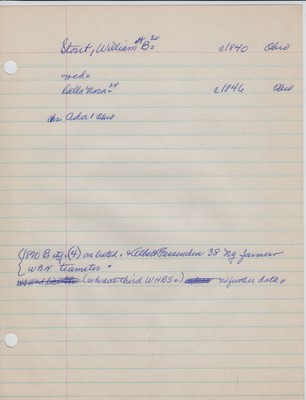 Stout, William B= 30 c1840 Ohio
md=
Della Nora= 24 c1846 Ohio
ch= Ada 1 Ohio
(1870 B city (4) as listed + Albert Fessenden 38 Ng farmer
WBN teamster =
(whereat third WHBS=) no further data =